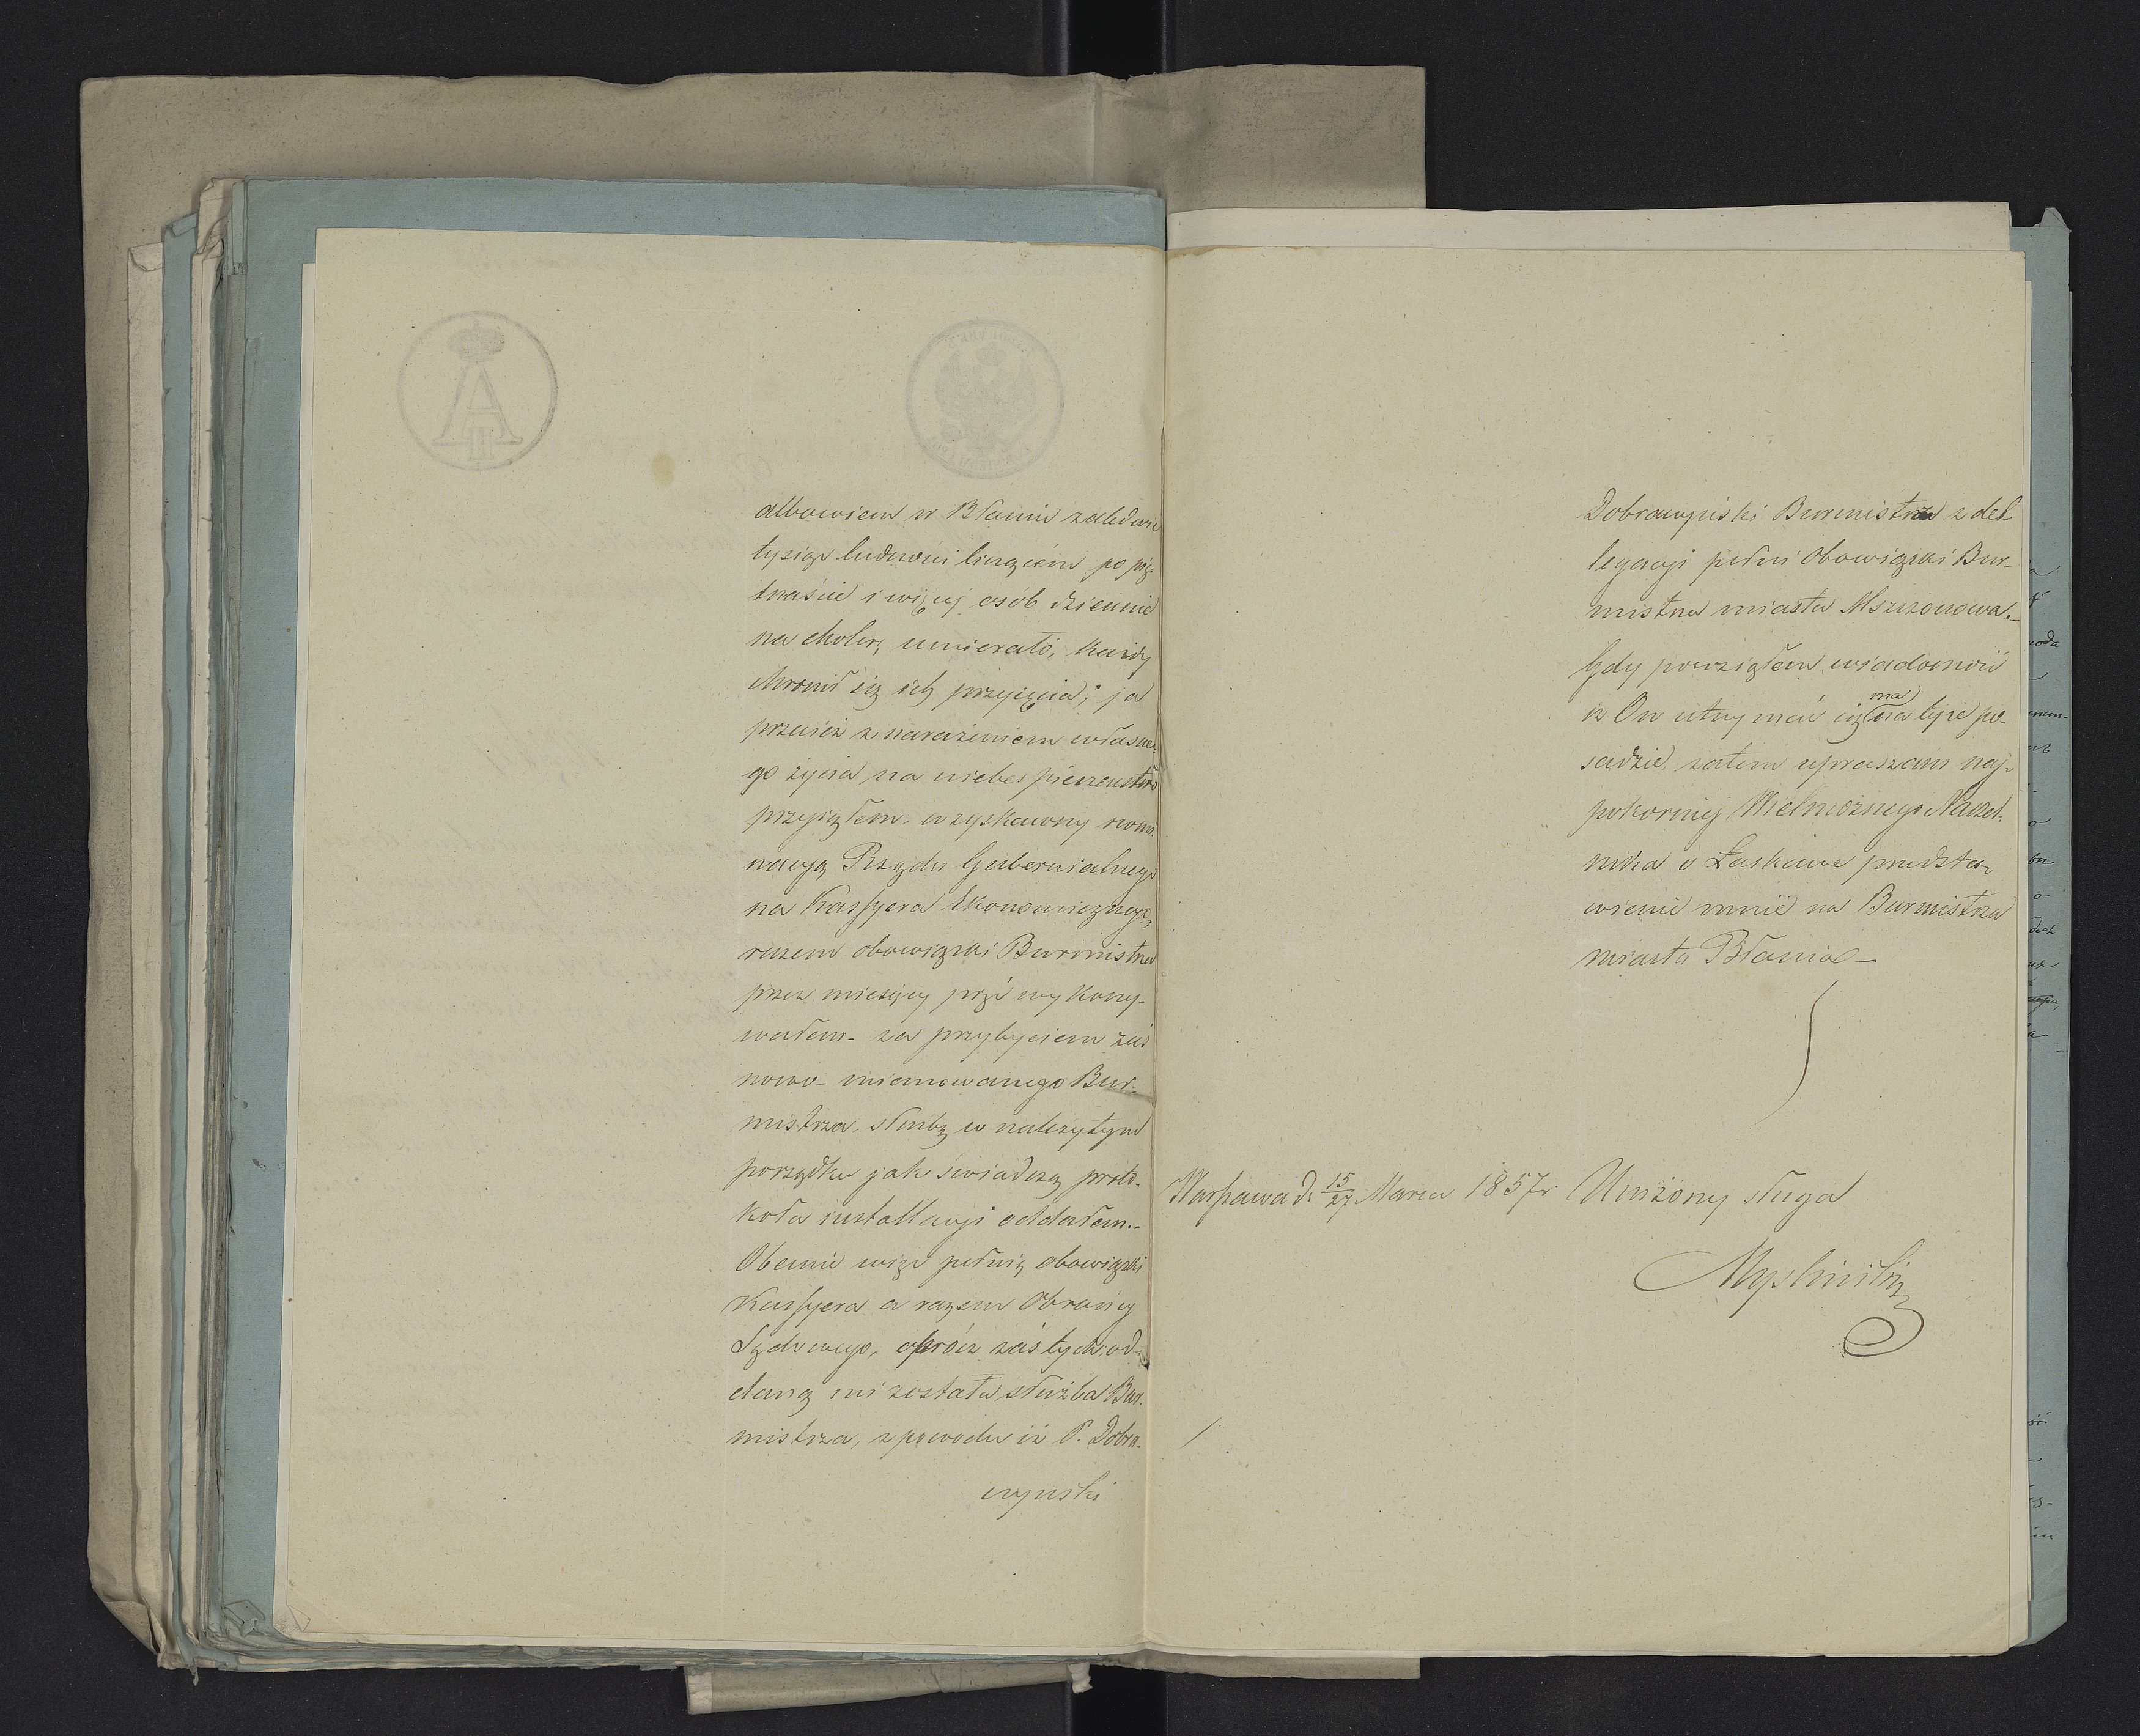 albowiem w Błoniu zaledwie
tysiąc ludności liczącém po pię-
tnaście i więcéj osób dziennie
na cholerę umierało, każdy
chronił się ich przyjęcia; ja
przecież z narażeniem własne-
go życia na niebespieczeństwo
przyjąłem uzyskawszy nomi-
nacyą Rządu Gubernialnego
na Kassyera Ekonomicznego,
razem obowiązki Burmistrza
przez miesięcy pięć wykony-
wałem – za przybyciem zaś
nowo-mianowanego Bur-
mistrza, służbę w należytym
porządku jak świadczą proto-
koła installacyi oddałem.–
Obecnie więc pełnię obowiązki
Kassyera a razem Obrońcy
Sądowego, oprócz zaś tych od-
daną mi została służba Bur-
mistrza, z powodu iż P. Dobra-
czyński
Dobraczyński Burmistrz z del-
legacyi pełni Obowiązki Bur-
mistrza miasta Mszczonowa.–
Gdy powziąłem wiadomość
iż On utrzymać się ma na tejże po-
sadzie, zatem upraszam naj-
pokorniej Wielmożnego Naczel-
nika o Łaskawe przedsta-
wienie mnie na Burmistrza
miasta Błonia –
Warszawa d. 15/27 Marca 1857 r. Uniżony sługa
Mysliński